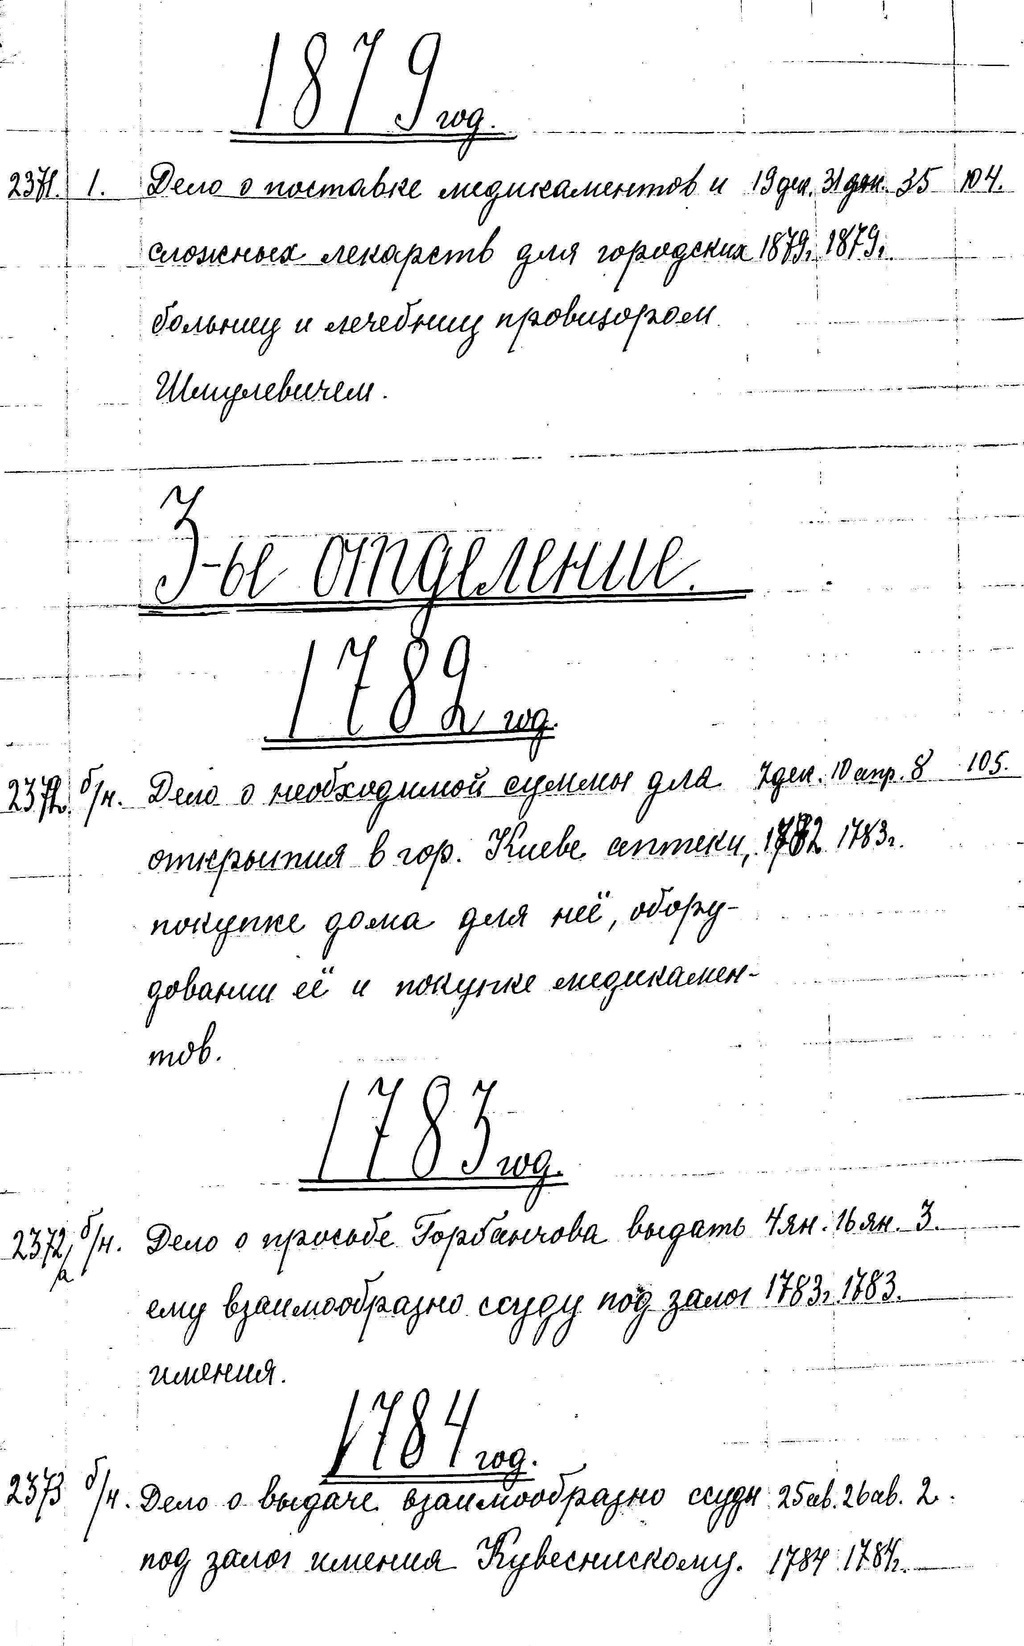 1879 год.
2371. 1. Дело о поставке медикаментов и 19 дек. 31 дек. 35 104.
сложных лекарств для городских 1879г. 1879г.
больниц и лечебниц провизором
Шмулевичем.
3-ье отделение.
1782 год.
2372. б/н. Дело о необходимой суммы для 7 дек. 10 апр. 8 105.
открытия в гор. Киеве аптеки, 1782 1783г.
покупке дома для неё, обору-
довании её и покупке медикамен-
тов.
1783 год.
2372а б/н. Дело о просьбе Горбанчова выдать 4 ян. 16 ян. 3.
ему взаимообразно ссуду под залог 1783г. 1783.
имения.
1784 год.
2373 б/н. Дело о выдаче взаимообразно ссуды 25 ав. 26 ав. 2.
под залог имения 1784 1784г.